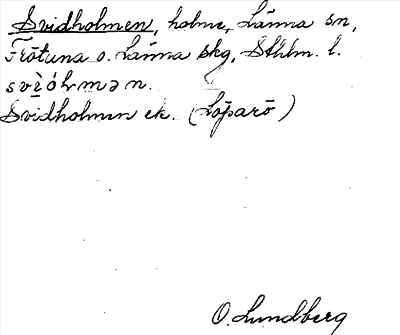 Svidholmen, holme, Länna sn,
Frötuna o. Länna skg, Sthlm. l.
svìd́ɷmən.
Svidholmen ek. (Löparö)
O. Lundberg